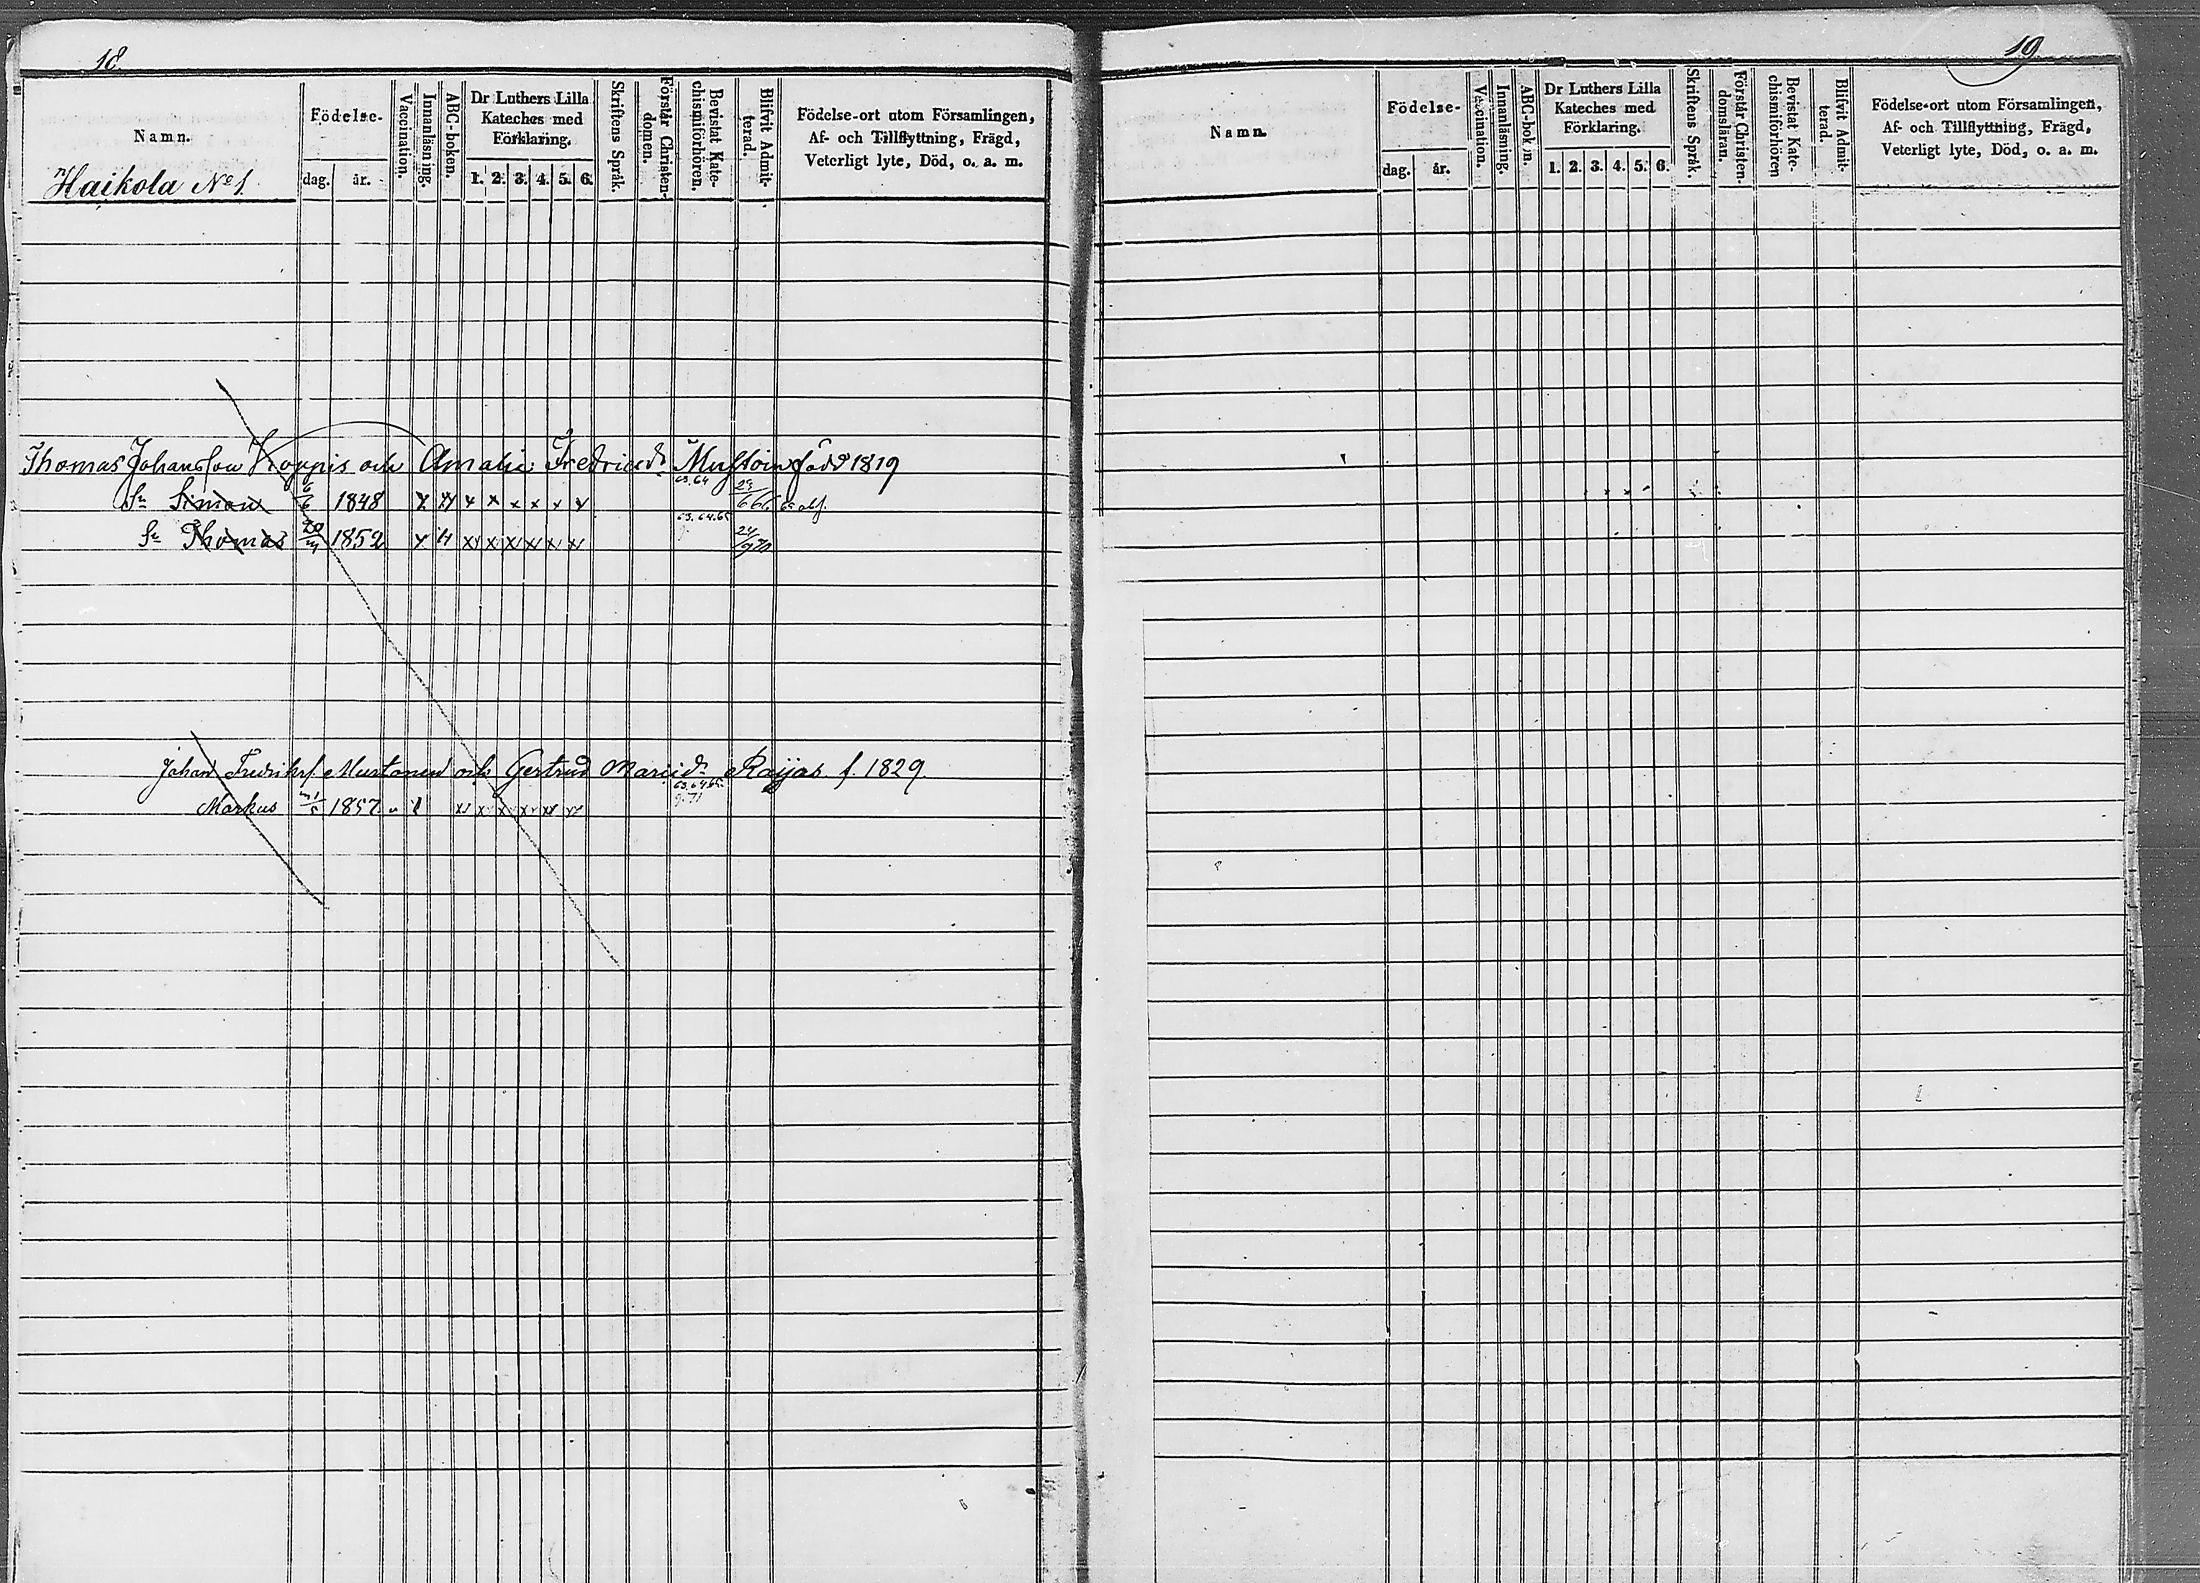 18
Namn.
Haikola No 1.
Födelse-
dag. år.
Vaccination.
Innanläsning.
ABC-boken.
Dr Luthers Lilla Kateches med Förklaring.
1. 2. 3. 4. 5. 6.
Skriftens Språk.
Förstår Christendomen.
Bevistat Katechismiförhören.
Blifvit Admitterad.
Födelse-ort utom Församlingen, Af- och Tillflyttning, Frägd, Veterligt lyte, Död, o. a. m.
Thomas Johansson Koppis och Amalia Fredricsdr född 1819
Sn Simon 6/6 1848 x x x x x x x x 63.64 29/6 66
Sn Thomas 1852 x x x x x x x 63.64.65 24/9 70
Johan Fredriksf Mustonen och Gertrud Mariedr Raijas f. 1829.
Markus 1857 x x x x x x 63.64.65. 71
19
Namn.
Födelse-
dag. år.
Vaccination.
Innanläsning.
ABC-boken.
Dr Luthers Lilla Kateches med Förklaring.
1. 2. 3. 4. 5. 6.
Skriftens Språk.
Förstår Christendomsläran.
Bevistat Katechismiförhören
Blifvit Admitterad.
Födelse-ort utom Församlingen, Af- och Tillflyttning, Frägd, Veterligt lyte, Död, o. a. m.